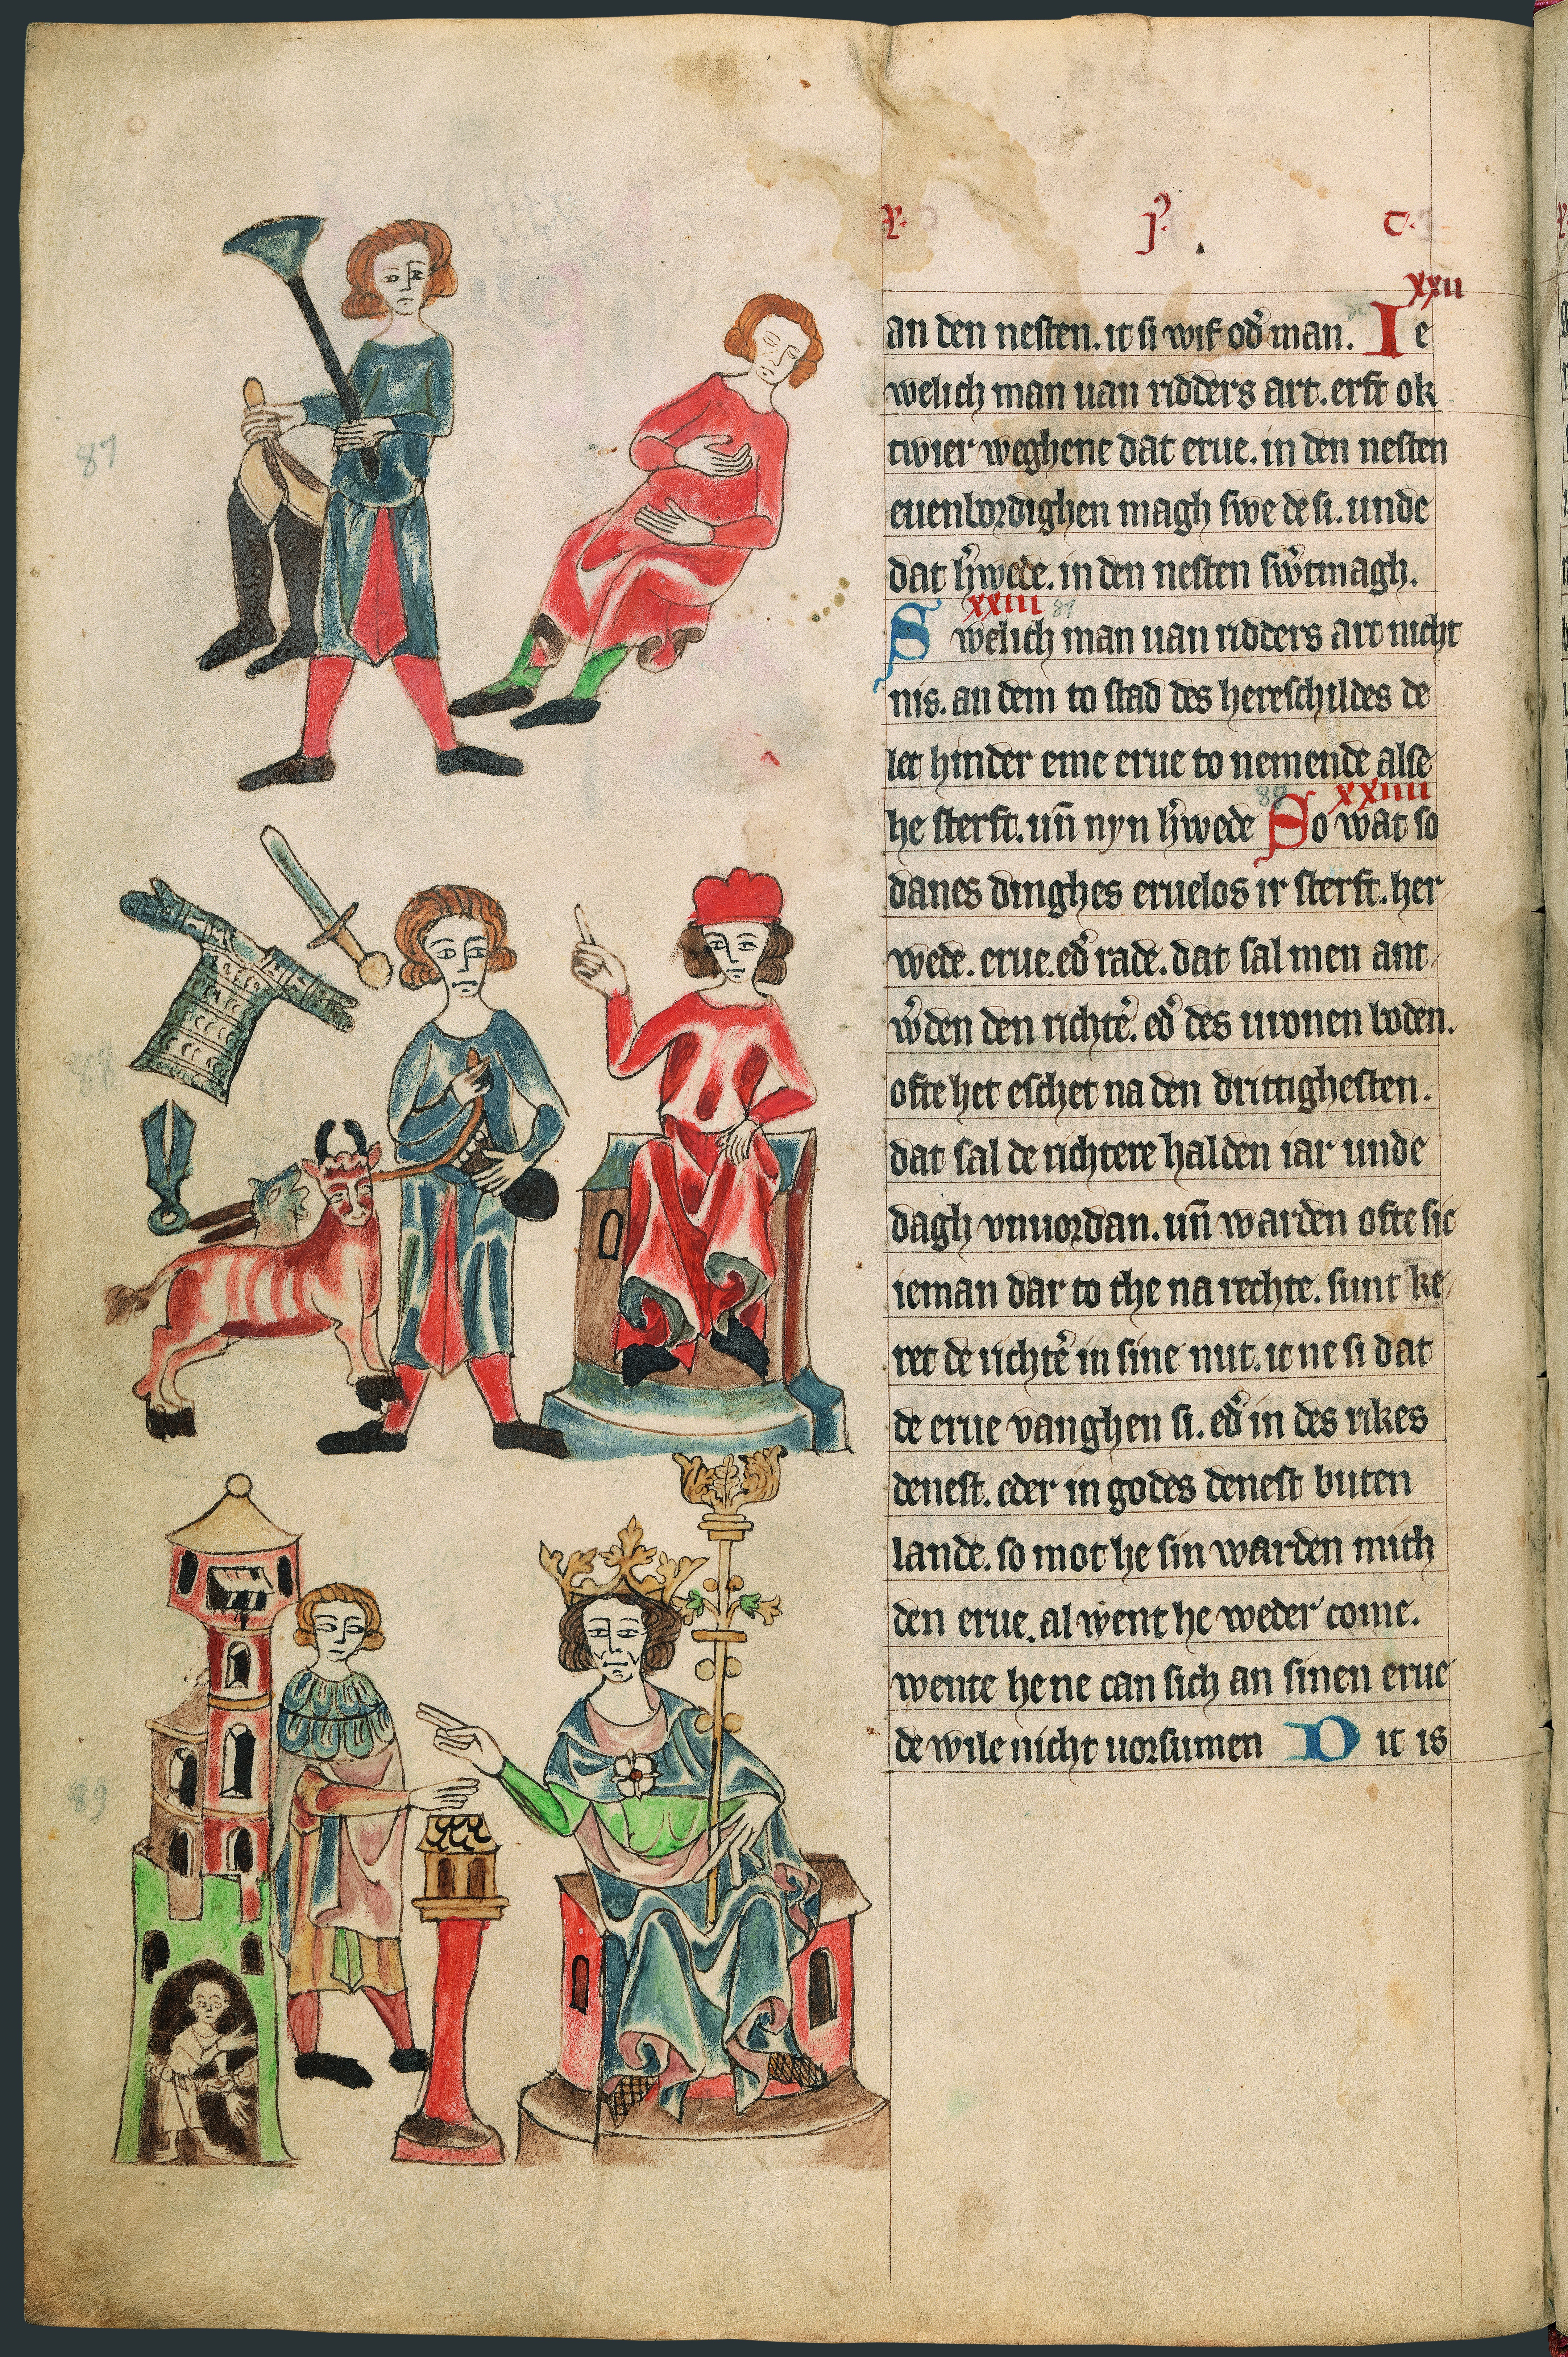 j.
xxii
an den nesten. it si wif od̓ man. Ie
welich man uan ridders art. erft ok
twier weghene dat erue. in den nesten
euenbordighen magh swe de si. unde
dat h̓wede. in den nesten sw̓tmagh.
xxiii 87
Swelich man uan ridders art nicht
nis. an dem to stad des hereschildes de
let hinder eme erue to nemende alse
88 xxiiii
he sterft. un̄ nyn h̓wede So wat so
danes dinghes eruelos ir sterft. her
wede. erue. ed̓ rade. dat sal men ant
w̓den den richte̓. ed̓ des uronen boden.
ofte het eschet na den drittighesten.
dat sal de richtere halden iar unde
dagh vnuordan. un̄ warden ofte sic
ieman dar to the na rechte. sunt ke
ret de richte̓ in sine nut. it ne si dat
de erue vanghen si. ed̓ in des rikes
denest. eder in godes denest buten
lande. so mot he sin warden mith
den erue. al went he weder come.
wente he ne can sich an sinen erue
de wile nicht uorsumen Dit is
87
88
89